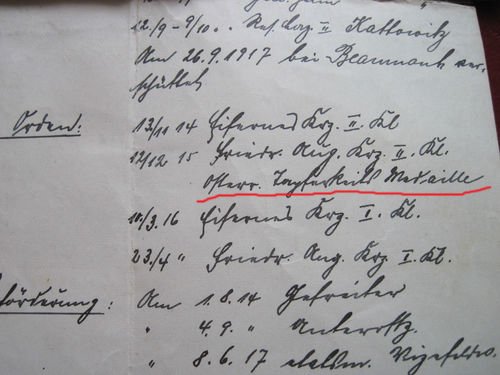 12/9 – 9/10 „ Res. Laz. II Kattowitz
Am 26.9.1917 bei Beaumont ver-
schüttet
Orden: 13/11 14 Eisernes Krz. II. Kl
12/12 15 Friedr. Aug. Krz. II. Kl.
Österr. Tapferkeits Medaille
10/3.16 Eisernes Krz. I. Kl.
23/4 „ Friedr. Aug. Krz I. Kl.
förderung: Am 1.8.14 Gefreiter
„ 4.9. „ Unteroffz.
„ 8.6.17 etatsm. Vizefeldw.